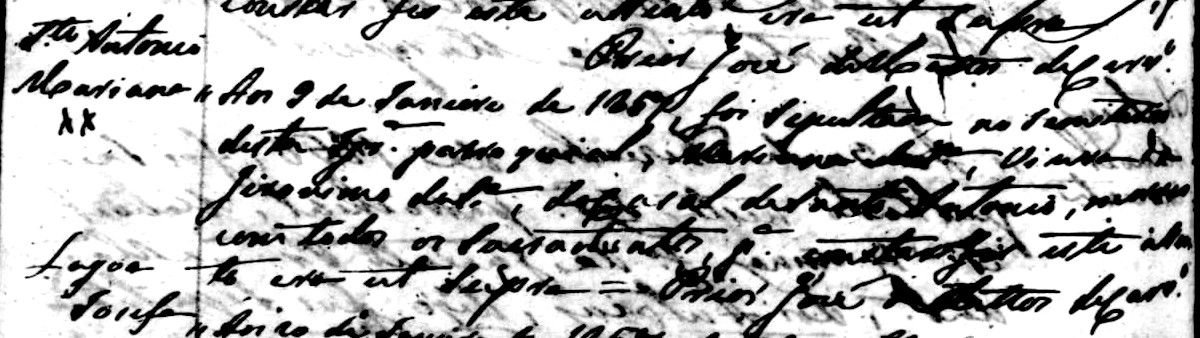 constar fiz este assento era ut supra
Prior José de Mattos de Carv.º
S.to Antonio
Mariana
XX
Aos 9 de Janeiro de 1857, foi sepultada no Semiterio
desta Igr.ª parroquial, Mariana Viuva de
Jeronimo du.te, do casal de Santo Antonio, morreu
com todos os Sacramentos, p.ª constar fiz este asen
to era ut supra = Prior José de Mattos de Carv.º
Lagoa
Josefa
Aos 10 de Janeiro de 1857